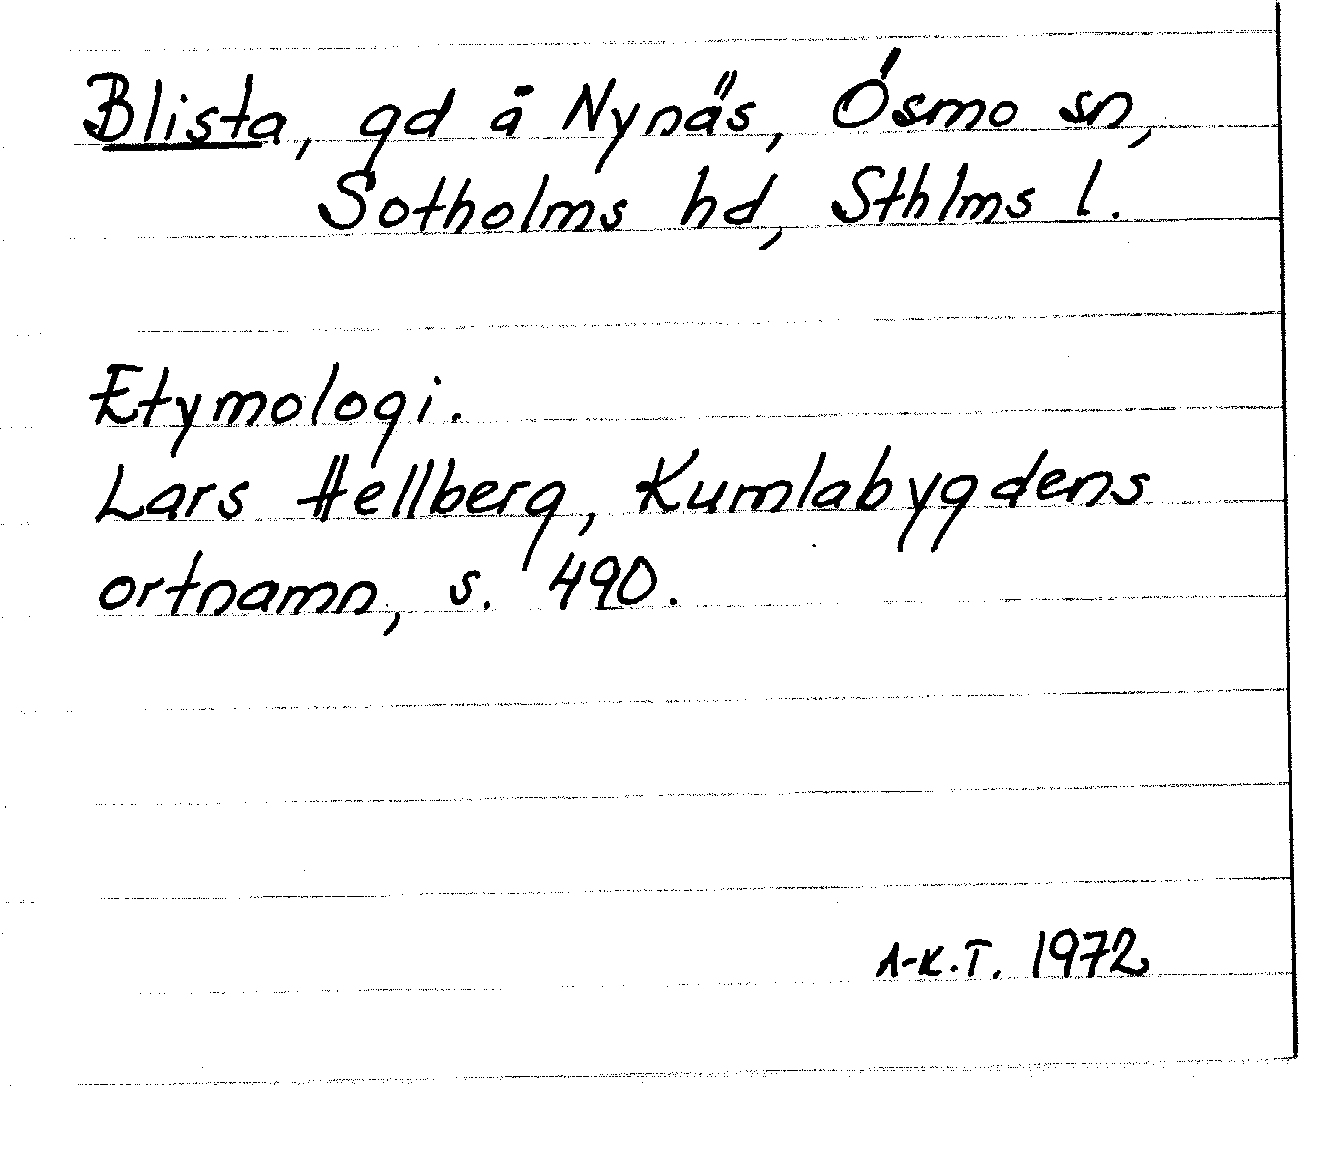 Blista, gd å Nynäs, Ösmo sn,
Sotholms hd, Sthlms l.
Etymologi.
Lars Hellberg, Kumlabygdens
ortnamn, s. 490.
A-K.T. 1972